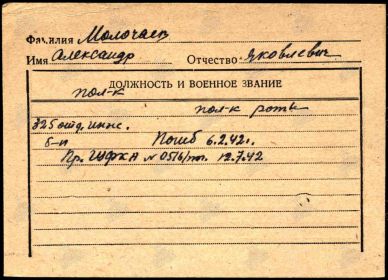 Фамилия Молочаев
Имя Александр Отчество Яковлевич
ДОЛЖНОСТЬ И ВОЕННОЕ ЗВАНИЕ
пол-к
пол-к роты
825 отд. инж.
б-н Погиб 6.2.42г.
Пр. № 0516/пог. 12.7.42